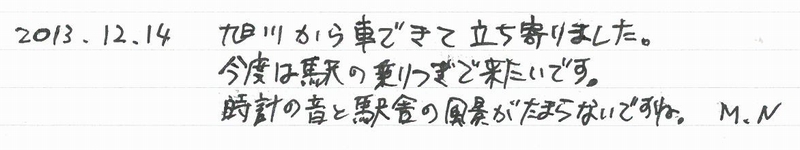 2013.12.14 旭川から車できて立ち寄りました。
今度は駅の乗りつぎで来たいです。
時計の音と駅舎の風景がたまらないですね。 M.N